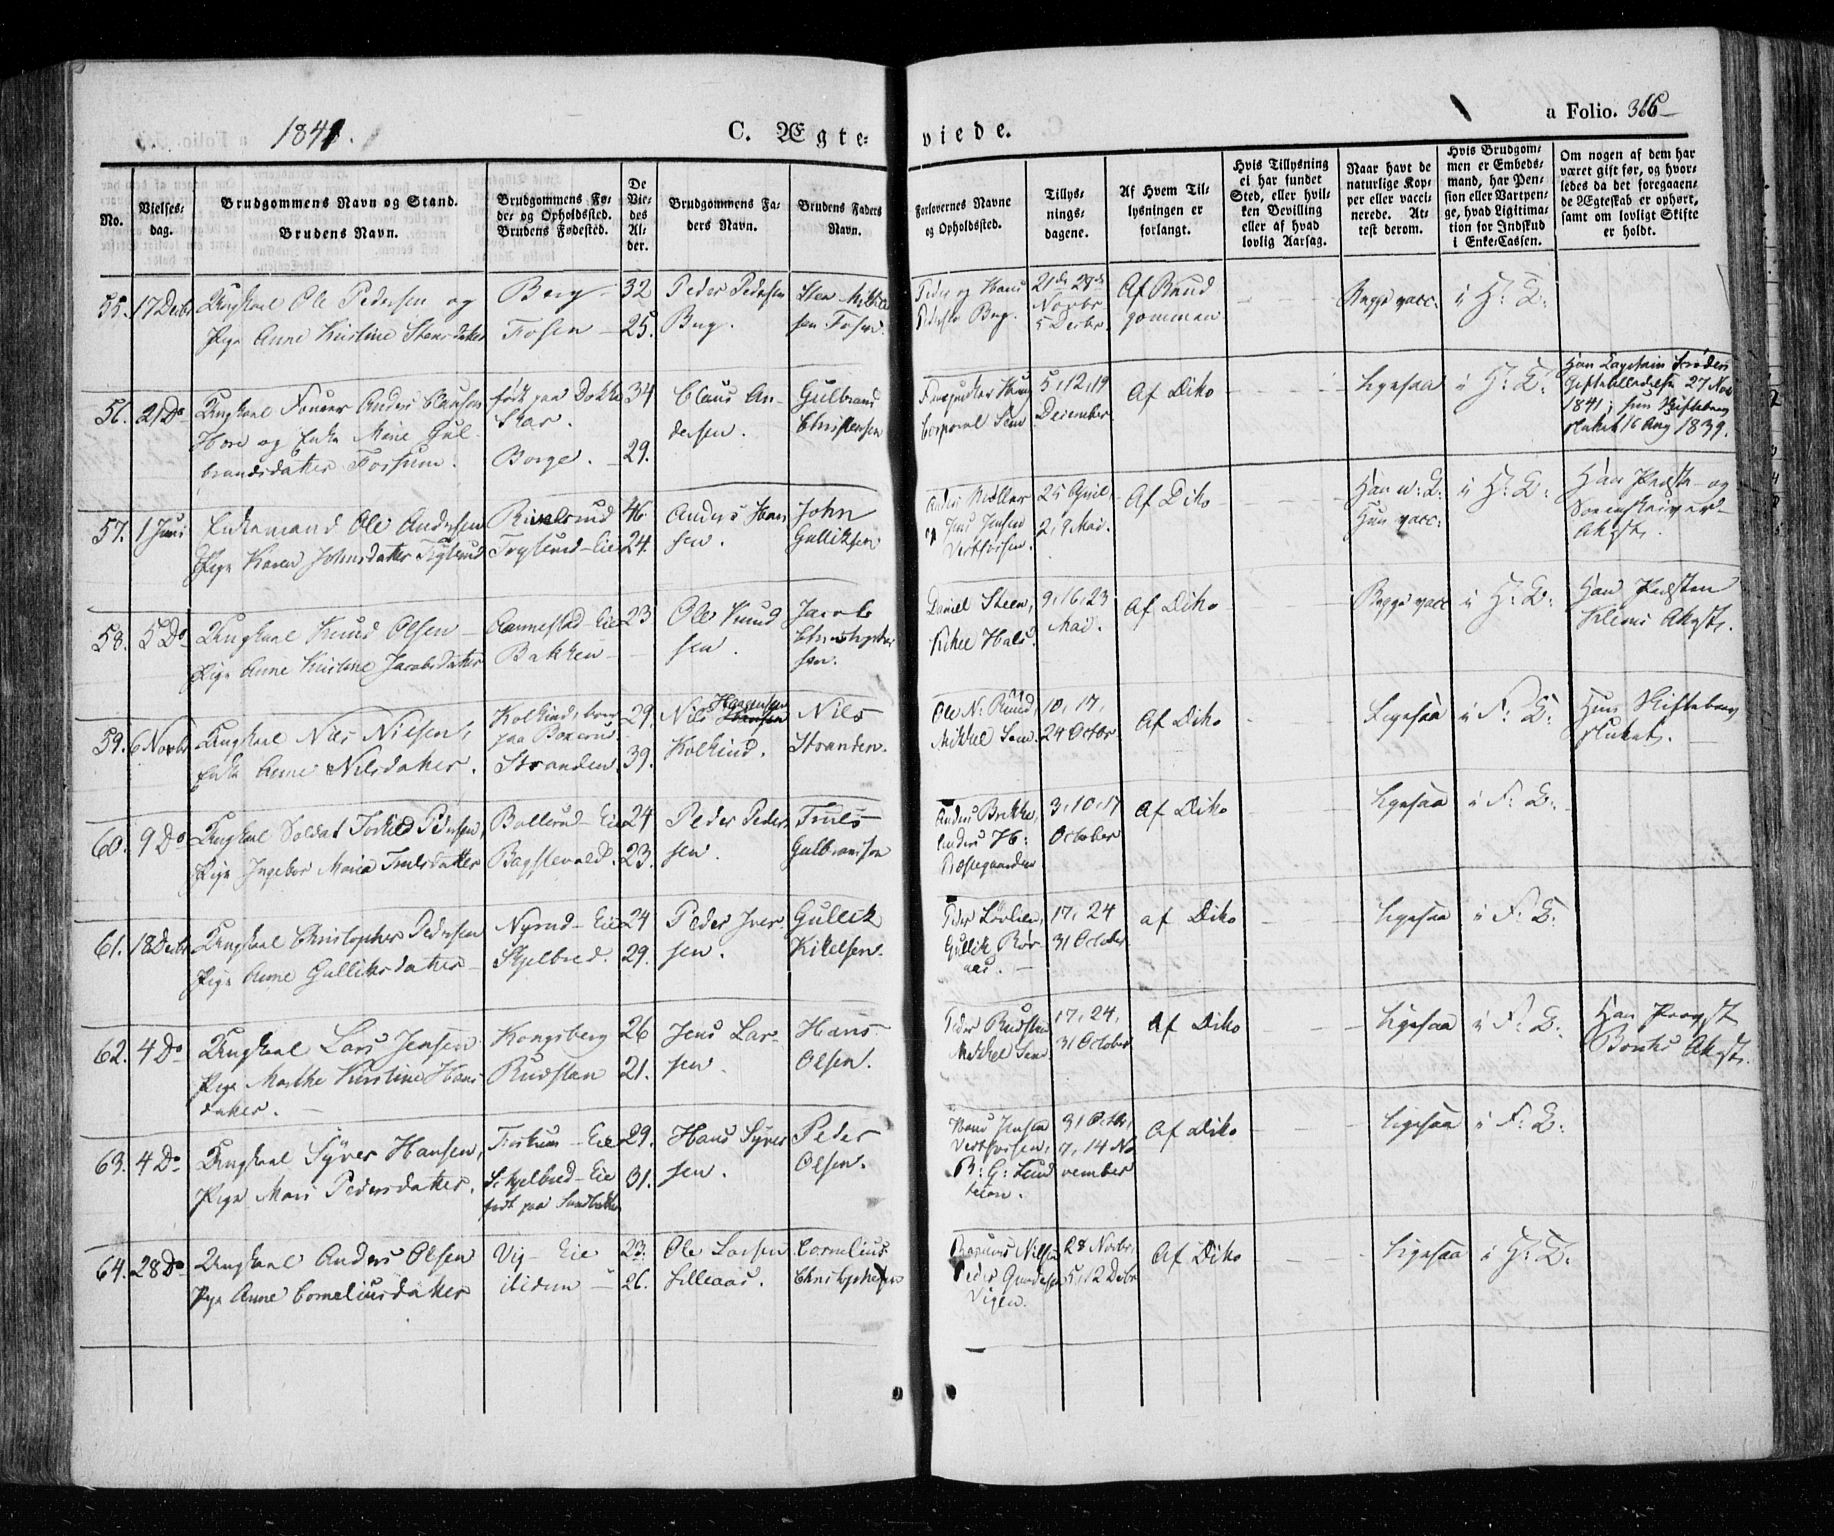 1841.
C. Ægte-
viede.
a Folio. 366
No.
Vielses-
dag.
Brudgommens Navn og Stand.
Brudens Navn.
Brudgommens Fø-
de- og Opholdssted.
Brudens Fødested.
De
Vie-
des
Al-
der.
Brudgommens Fa-
ders Navn.
Brudens Faders
Navn.
Forlovernes Navne
og Opholdssted.
Tillys-
nings-
dagene.
Af Hvem Til-
lysningen er
forlangt.
Hvis Tillysning
ei har fundet
Sted, eller hvil-
ken Bevilling
eller af hvad
lovlig Aarsag.
Naar havt de
naturlige Kop-
per eller vacci-
nerede. At-
test derom.
Hvis Brudgom-
men er Embeds-
mand, har Pen-
sion eller Vartpen-
ge, hvad Ligitima-
tion for Indskud
i Enke-Cassen.
Om nogen af dem har
været gift før, og hvor-
ledes da det foregaaen-
de Ægteskab er ophørt,
samt om lovligt Skifte
er holdt.
55. 17 Decbr Ungkarl Ole Pedersen og
Pige Anne Kirstine Stensdatter
Berg
Fosen
32
25.
Peder Pedersen
Bug.
Sten Mikkel
sen Fosen.
Peder og Hans
21de 28de
Novbr
5 Decbr.
Af Brud
gommen
Begge vacc. i H: K:
56. 21 Do Ungkarl Anders Clausen
Hore og Enke Marie Gul-
brandsdatter Fossum.
født paa Dokke
Borge.
34
29.
Claus An-
dersen.
Gulbrand
Christensen
Corporal Sem
5, 12, 19
December
Af Dito
Ligesaa i H: K:
27 Nov
1841; hun Skiftebrev
16 Aug 1839.
57. 1 Juni Enkemand Ole Andersen
Pige Karen Johnsdatter Foglerud
46
24.
Anders Han
sen.
John
Gulliksen
Anders Møller
og Jens Jensen
25 April,
2, 9 Mai.
Af Dito
Han n: K:
Hun vacc:
i H: K:
58. 5 Do Ungkarl Knud Olsen
Pige Anne Kirstine Jacobsdatter
Aannestad-Eie
Bakken
23
Ole Knud
sen.
Jacob
Christopher
sen.
Daniel Steen,
Kikel Hals.
9, 16, 23
Mai.
Af Dito
Begge vacc i H: K:
59. 6 Novbr Ungkarl Nils Nielsen,
Enke Anne Nilsdatter.
Stranden.
29.
39.
Nils Haagensen
Kolkind.
Nils
Stranden.
Ole N: Ruud,
Mikkel Sem.
10, 17,
24 Octbr
Af Dito
Ligesaa i F: K:
Hun Skiftebrev
60. 9 Do Ungkarl Soldat Torkild Pedersen,
Pige Ingebor Maria Trulsdatter
Bollerud-Eie
Bagstevold.
24
23.
Peder Peder
sen.
Truls
Gulbransen
Anders Bekke,
Anders H:
3, 10, 17
October
Af Dito
Ligesaa i F: K:
61. 18 Decbr Ungkarl Christopher Pedersen
Pige Anne Gulliksdatter
Nyrud-Eie
Skjelbred.
24
29.
Peder Iver
sen.
Gullik
Kittelsen.
Peder Løvlien,
Gullik Rør-
aas.
17, 24
31 October
af Dito
Ligesaa i F: K:
62. 4 Do Ungkarl Lars Jensen
Pige Marthe Kirstine Hans
datter.
Kongsberg
Rudstan
26
21.
Jens Lar-
sen.
Hans
Olsen.
Peder Rudstan
Mikkel Sem
17, 24,
31 October
Af Dito
Ligesaa i F: K:
Han Provst
63. 4 Do Ungkarl Syver Hansen,
Pige Mari Pedersdatter.
Forsum-Eie
Skjelbred-Eie
født paa Sandbakke
29.
31.
Hans Syver
sen.
Peder
Olsen.
Hans Jensen
31 Octbr,
7, 14 No
vember
Af Dito
Ligesaa i F: K:
64. 28 Do Ungkarl Anders Olsen
Pige Anne Corneliusdatter
Vig-Eie
ibidem
23.
26.
Ole Larsen
Lilleaas.
Cornelius
Christophersen
Rasmus Nilsen
Vigen.
28 Novbr,
5, 12 Decbr
Af Dito
Ligesaa i H: K: